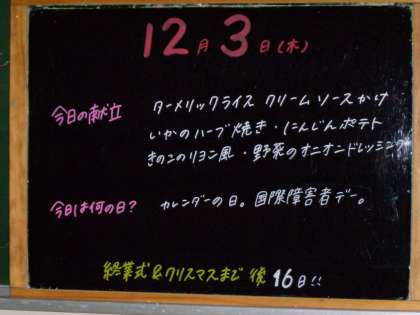 12月3日(木)
今日の献立
ターメリックライス クリームソースかけ
いかのハーブ焼き・にんじんポテト
きのこのリヨン風・野菜のオニオンドレッシング
今日は何の日?
カレンダーの日。国際障害者デー。
終業式&クリスマスまで 後 16日!!